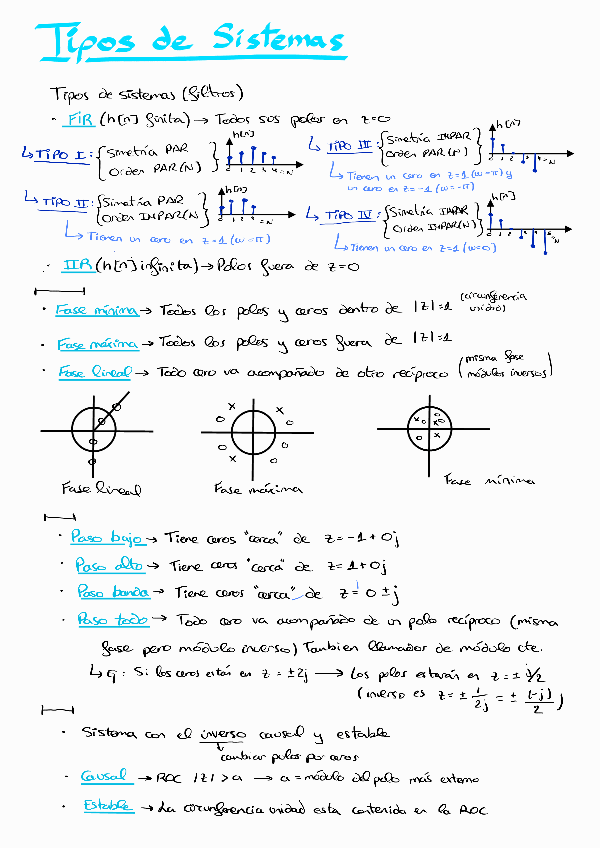 Tipos de Sistemas
Tipos de sistemas (filtros)
· FIR (h[n] finita) → Todos sus polos en z=0
↳ TIPO I: { Simetría PAR
Orden PAR (N) }
h[n]
0 1 2 3 4 = N
↳ TIPO III: { Simetría IMPAR
Orden PAR (N) }
h[n]
0 1 2 3 4 = N
↳ Tienen un cero en z=1 (ω=π) y
un cero en z=-1 (ω=-π)
↳ TIPO II: { Simetría PAR
Orden IMPAR (N) }
h[n]
0 1 2 3 = N
↳ Tienen un cero en z=1 (ω=π)
↳ TIPO IV: { Simetría IMPAR
Orden IMPAR (N) }
h[n]
↳ Tienen un cero en z=1 (ω=0)
· IIR (h[n] infinita) → Polos fuera de z=0
· Fase mínima → Todos los polos y ceros dentro de |z|=1 (circunferencia unidad)
· Fase máxima → Todos los polos y ceros fuera de |z|=1
· Fase lineal → Todo cero va acompañado de otro recíproco (misma fase módulos inversos)
Fase lineal
Fase máxima
Fase mínima
· Paso bajo → Tiene ceros "cerca" de z=-1+0j
· Paso alto → Tiene ceros "cerca" de z=1+0j
· Paso banda → Tiene ceros "cerca" de z=0±j
· Paso todo → Todo cero va acompañado de un polo recíproco (misma
fase pero módulo inverso) Tanbien llamados de módulo cte.
↳ Ej: Si los ceros están en z=±2j → Los polos estarán en z=±j/2
(inverso es z=± 1/2j = ± (-j)/2)
· Sistema con el inverso causal y estable
cambiar polos por ceros
· Causal → ROC |z|>a → a=módulo del polo más externo
· Estable → La circunferencia unidad esta contenida en la ROC